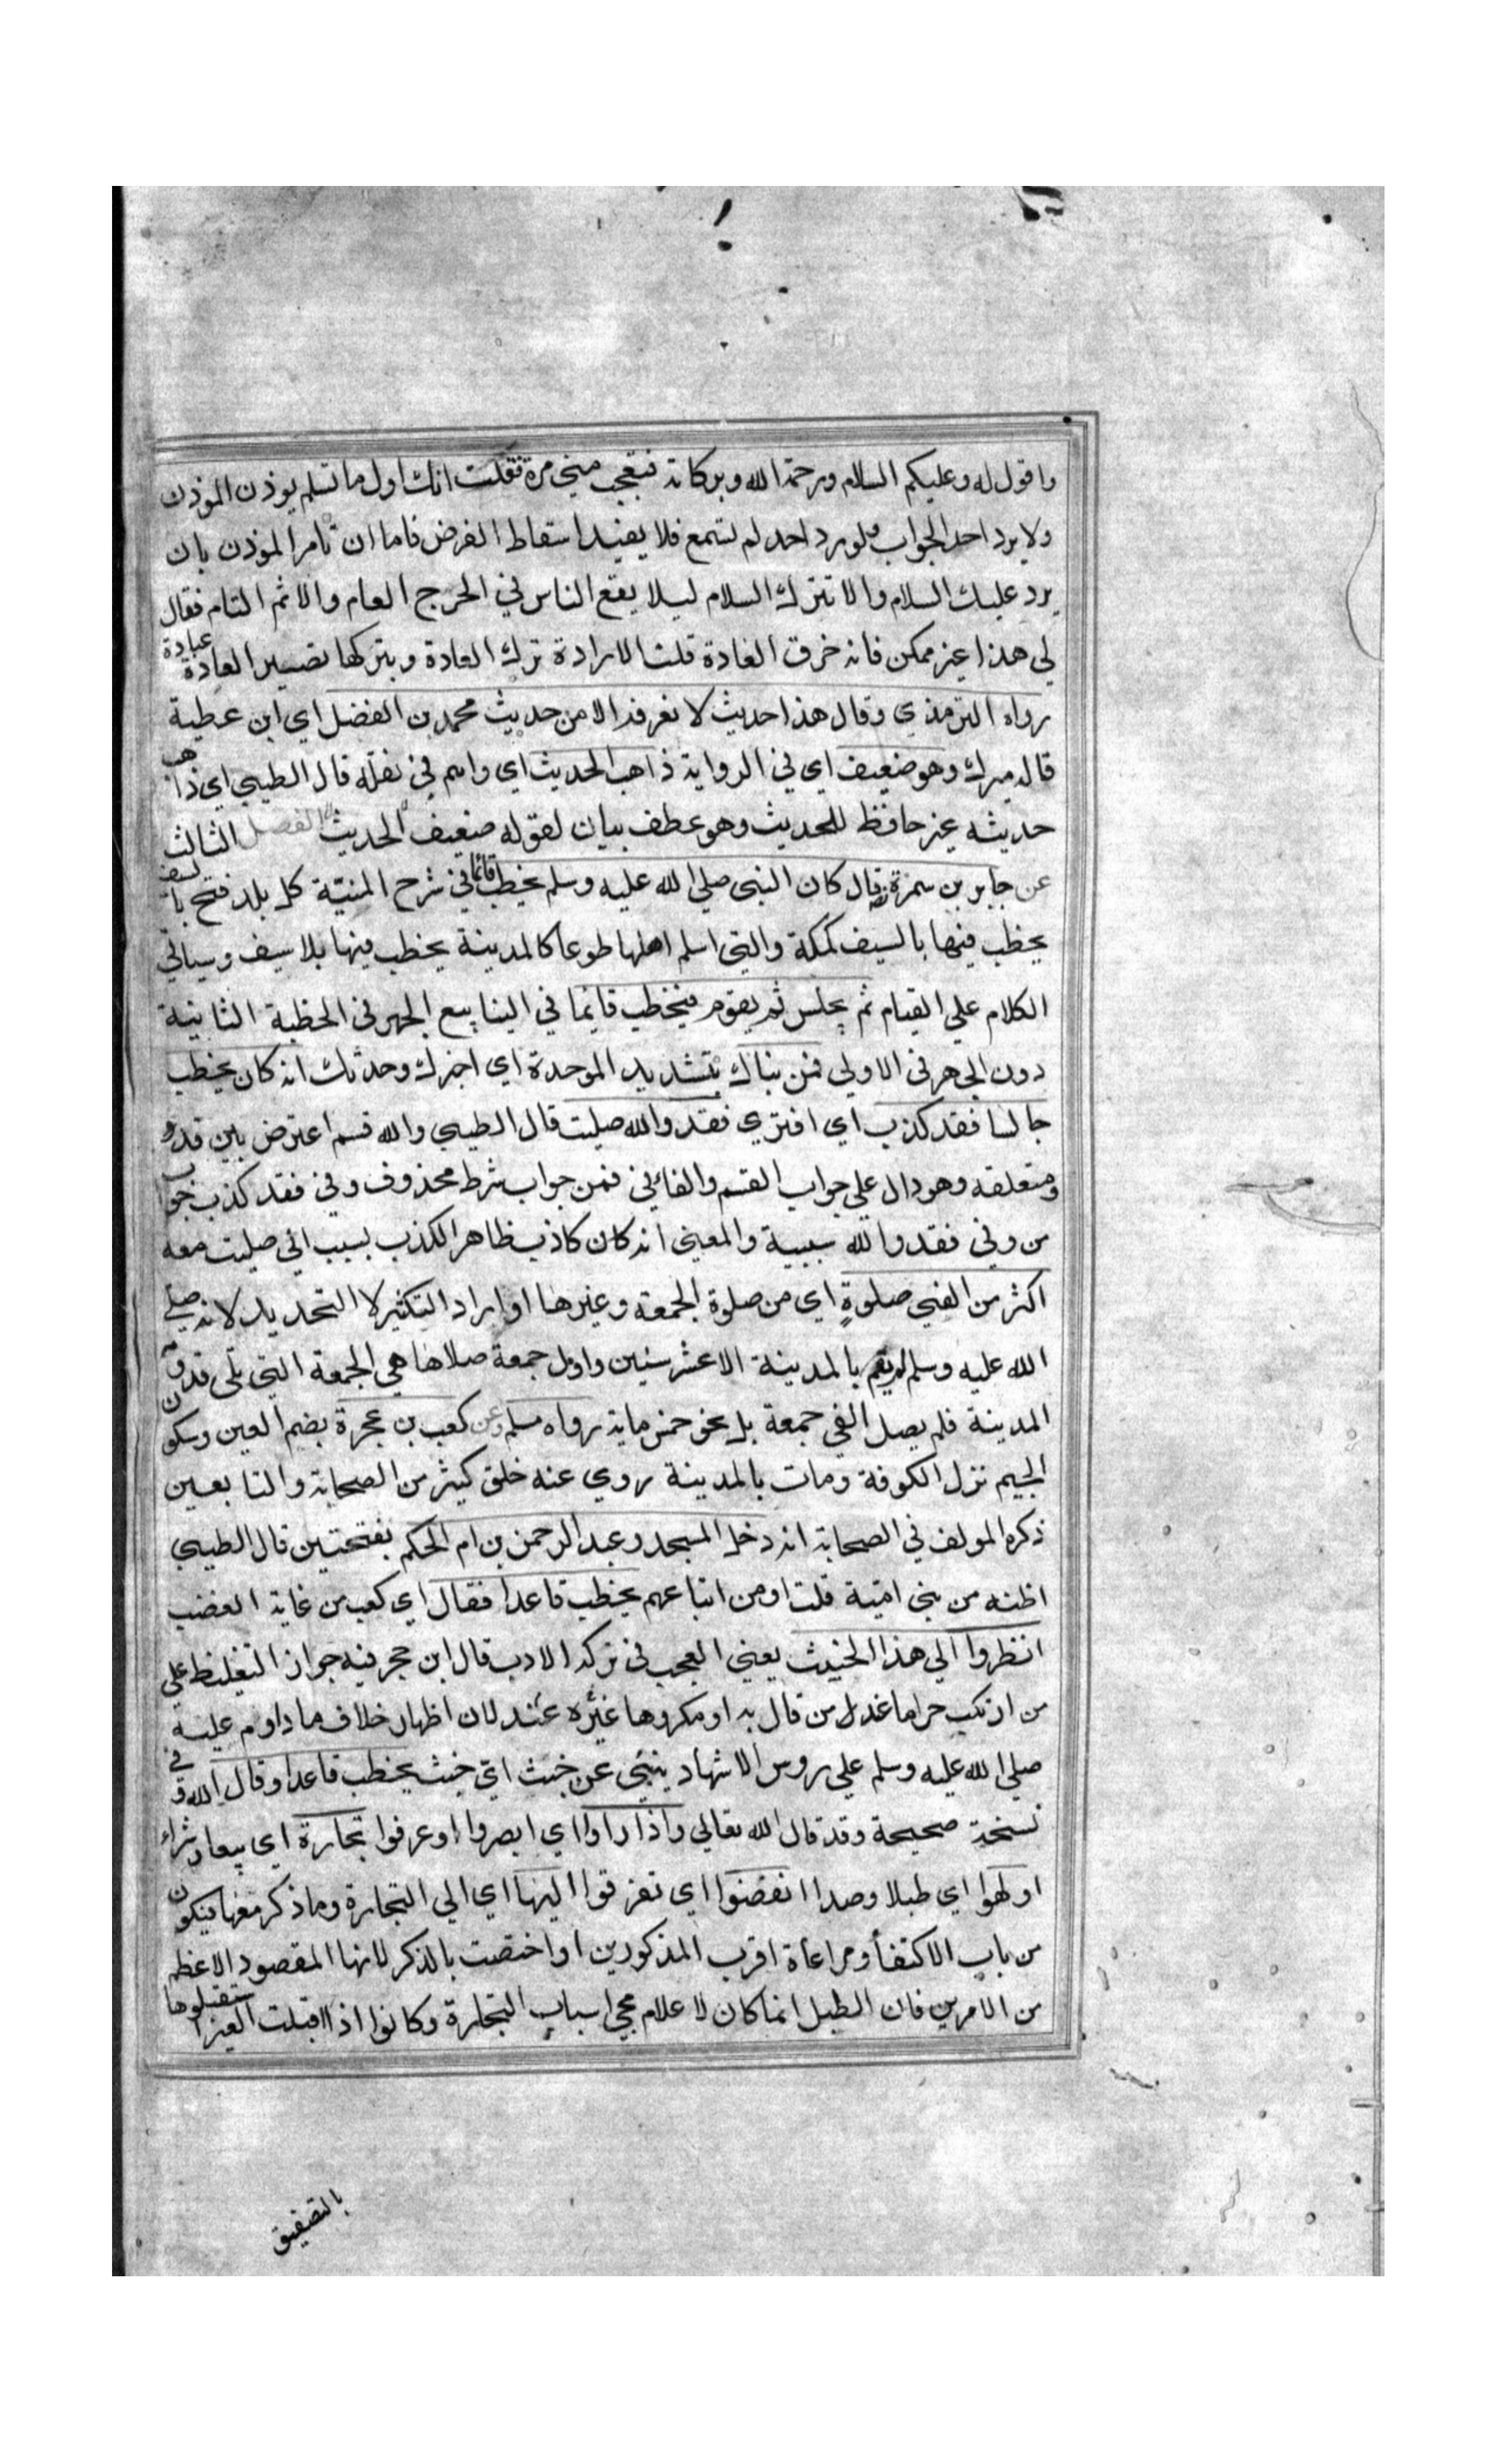 واقول له وعليكم السلام ورحمة الله وبركاته فتعجب مني مرة فقلت انك اول ما تسلم يوذن الموذن
ولا يرد احد الجواب ولو رد احد لم تسمع فلا يفيد اسقاط الفرض فاما ان تامر الموذن بان
يرد عليك السلام والا تترك السلام ليلا يقع الناس في الحرج العام والاثم التام فقال
لي هذا غير ممكن فانه خرق العادة قلت الارادة ترك العادة وبتركها تصير العادة عبادة
رواه الترمذي وقال هذا حديث لا نعرفه الا من حديث محمد بن الفضل اي ابن عطية
قاله ميرك وهو ضعيف اي في الرواية ذاهب الحديث اي واهم في نقله قال الطيبي اي ذاهب
حديثه غير حافظ للحديث وهو عطف بيان لقوله ضعيف الحديث الفصل الثالث
عن جابر بن سمرة قال كان النبي صلي الله عليه وسلم يخطب قائما في شرح المنية كل بلد فتح بالسيف
يخطب فيها بالسيف كمكة والتي اسلم اهلها طوعا كالمدينة يخطب فيها بلا سيف وسياتي
الكلام علي القيام ثم يجلس ثم يقوم فيخطب قايما في الينابيع الجهر في الخطبة الثانية
دون الجهر في الاولي فمن نباك بتشديد الموحدة اي اخبرك وحدثك انه كان يخطب
جالسا فقد كذب اي افتري فقد والله صليت قال الطيبي والله قسم اعترض بين قد و
ومتعلقه وهو دال علي جواب القسم والفا في فمن جواب شرط محذوف وفي فقد كذب جواب
من وفي فقد والله سببية والمعني انه كان كاذب ظاهر الكذب بسبب اني صليت معه
اكثر من الفي صلوة اي من صلوة الجمعة وغيرها او ايراد التكثير لا التحديد لانه صلي
الله عليه وسلم لم يقم بالمدينة الا عشر سنين واول جمعة صلاها هي الجمعة التي تلي قدومه
المدينة فلم يصل الفي جمعة بل نحو خمس ماية رواه مسلم وعن كعب بن عجرة بضم العين وسكون
الجيم نزل الكوفة ومات بالمدينة روي عنه خلق كثير من الصحابة والتابعين
ذكره المولف في الصحابة انه دخل المسجد وعبد الرحمن بن ام الحكم بفتحتين قال الطيبي
اظنه من بني امية قلت او من اتباعهم يخطب قاعدا فقال اي كعب من غاية الغضب
انظروا الي هذا الخبيث يعني العجب في تركه الادب قال ابن حجر فيه جواز التغليظ علي
من ارتكب حراما عند من قال به او مكروها غيره عند لان اظهار خلاف ما داوم عليه
صلي الله عليه وسلم علي روس الاشهاد ينبئ عن خبث اي خبث يخطب قاعدا وقال الله وفي
نسخة صحيحة وقد قال الله تعالي واذا راوا اي ابصروا او عرفوا تجارة اي بيعا وشراء
او لهوا اي طبلا وصدا انفضوا اي تفرقوا اليها اي الي التجارة وما ذكر معها فيكون
من باب الاكتفأ ومراعاة اقرب المذكورين او اختصت بالذكر لانها المقصود الاعظم
من الامرين فان الطبل انما كان لاعلام مجي اسباب التجارة وكانوا اذا اقبلت العير استقبلوها
بالتصفيق